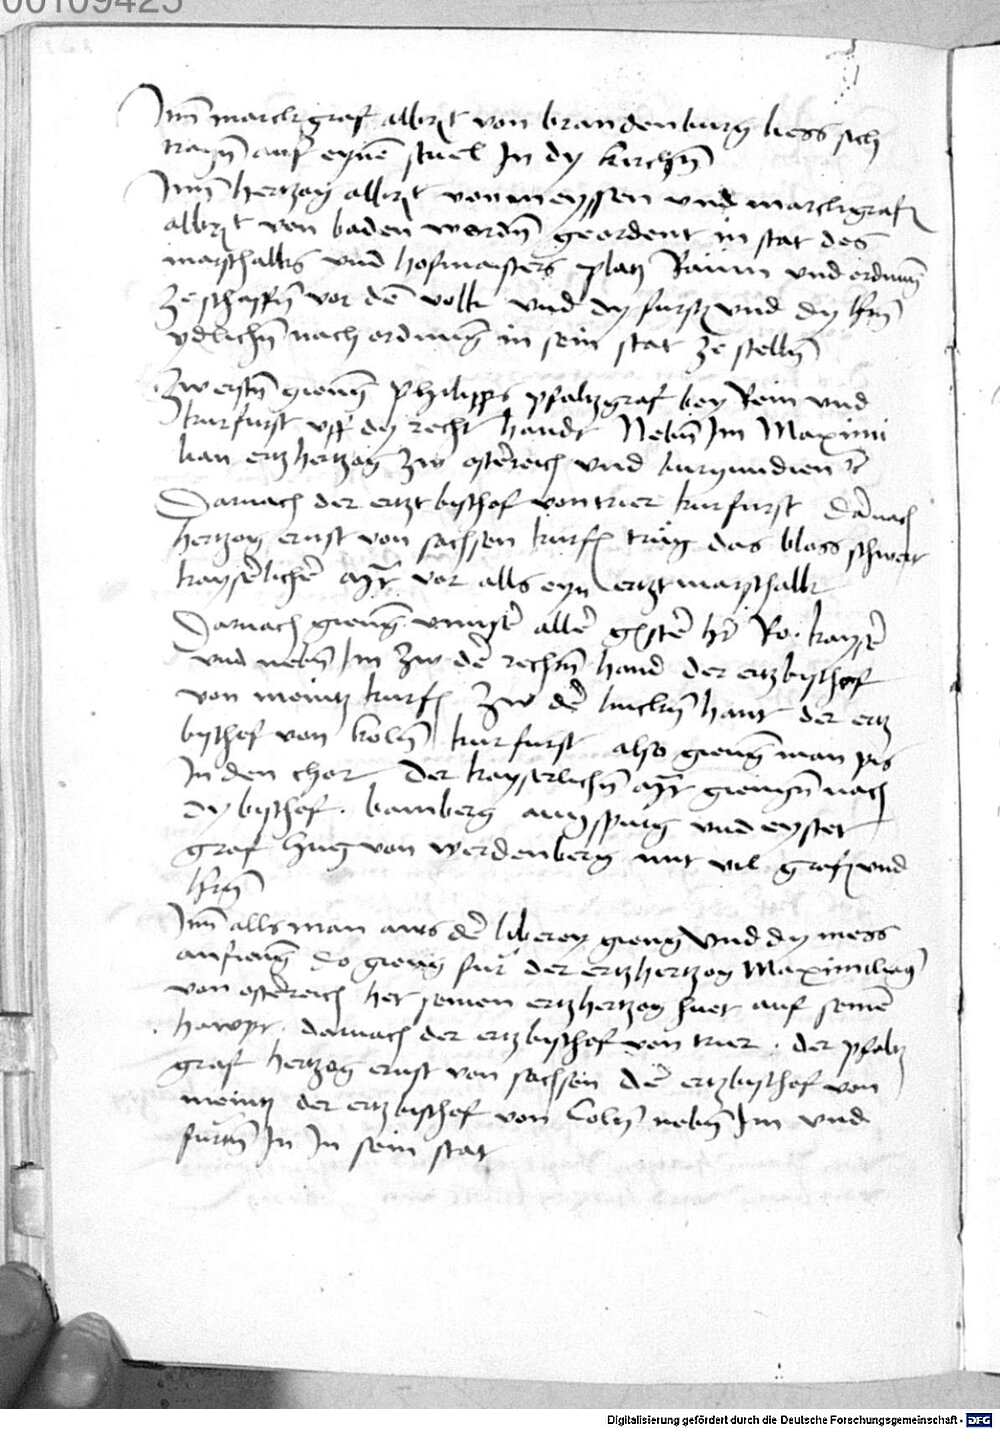 00109425
Jtm̄ marchgraf albrꝛt von brandenburg liess sich
tragn̄ auf eynē stuel Jn dy kirchn̄
Jtm̄ hertzog albrꝛt von meyssen vnd marchgraf
albrꝛt von baden wordn̄ geordent in stat des
marschalks vnd hofmaisters platz Raum vnd ordnung
ze schaffn̄ vor dē volk vnd dy furstn̄ vnd dy hrn̄
ydlichn̄ nach ordnung in sein stat ze stelln̄
Zw erstn̄ gieng Philipps pfaltzgraf bey Rein vnd
kurfurst vff dy recht handt Nebn̄ Jm Maximi
lian ertzhertzog zw ostereich vnd burgundien ꝛc
Darnach der ertzbischof von trier kurfurst darnach
hertzog ernst von sachsen kurf trug das bloss schwert
kayserlicher Mt vor alls eyn ertzmarschalk
Darnach gieng vnnser aller gster hr̄ Ro. kayser
vnd nebn̄ Jm zw der rechtn̄ hand der ertzbischof
von meintz kurf Zw der linckn̄ hant der ertz
bischof von koln̄ kurfurst also gieng man pis
Jn den chor Der kayserlichn̄ Mt giengn̄ nach
dy bischof . bamberg augspurg vnd eystet
graf hug von werdenberg mit vil grafn̄ vnd
hrn̄
Jtm̄ alls man aws der liberey gieng vnd dy mess
anfieng do gieng fur der ertzhertzog Maximilian
von ostereich het seinen ertzhertzog huet auf seinē
hawpt . darnach der ertzbischof von trier . der pfaltz
graf hertzog ernst von sachsen dē ertzbischof von
meintz der ertzbischof von Coln̄ nebn̄ Jm vnd
furtn̄ Jn Jn sein stat
Digitalisierung gefördert durch die Deutsche Forschungsgemeinschaft - DFG